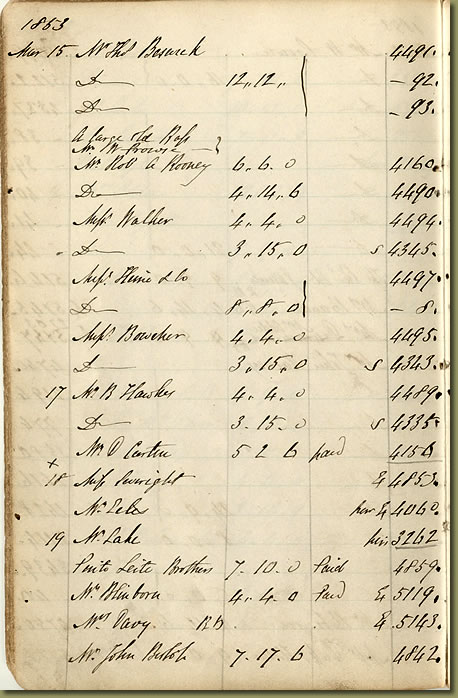 1853
Mar 15 Mr Thos Boswek 4491.
Do 12,,12,, – 92.
Do – 93.
A large old Bass
Mr W Prowse
Mr Robt A Rooney 6. 6. 0 4160.
Do 4. 14. 6 4490.
Messrs Walker 4. 4. 0 4494.
Do 3. 15. 0 s 4345.
Messrs & Co 4497.
Do 8,, 8,, 0 – 8.
Messrs Boucher 4. 4. 0 4495.
Do 3. 15. 0 s 4343.
17 Mr B Hawkes 4. 4. 0 4489.
Do 3. 15. 0 s 4335.
Mr D 5 2 6 paid 4156
x
18 Miss 4853.
Mr 4060.
19 Mr Lake 3262
Pinto Leite Brothers 7. 10. 0 Paid 4859.
Mr 4. 4. 0 Paid 5119.
Mrs Davy 5143.
Mr John 7. 17. 6 4842.